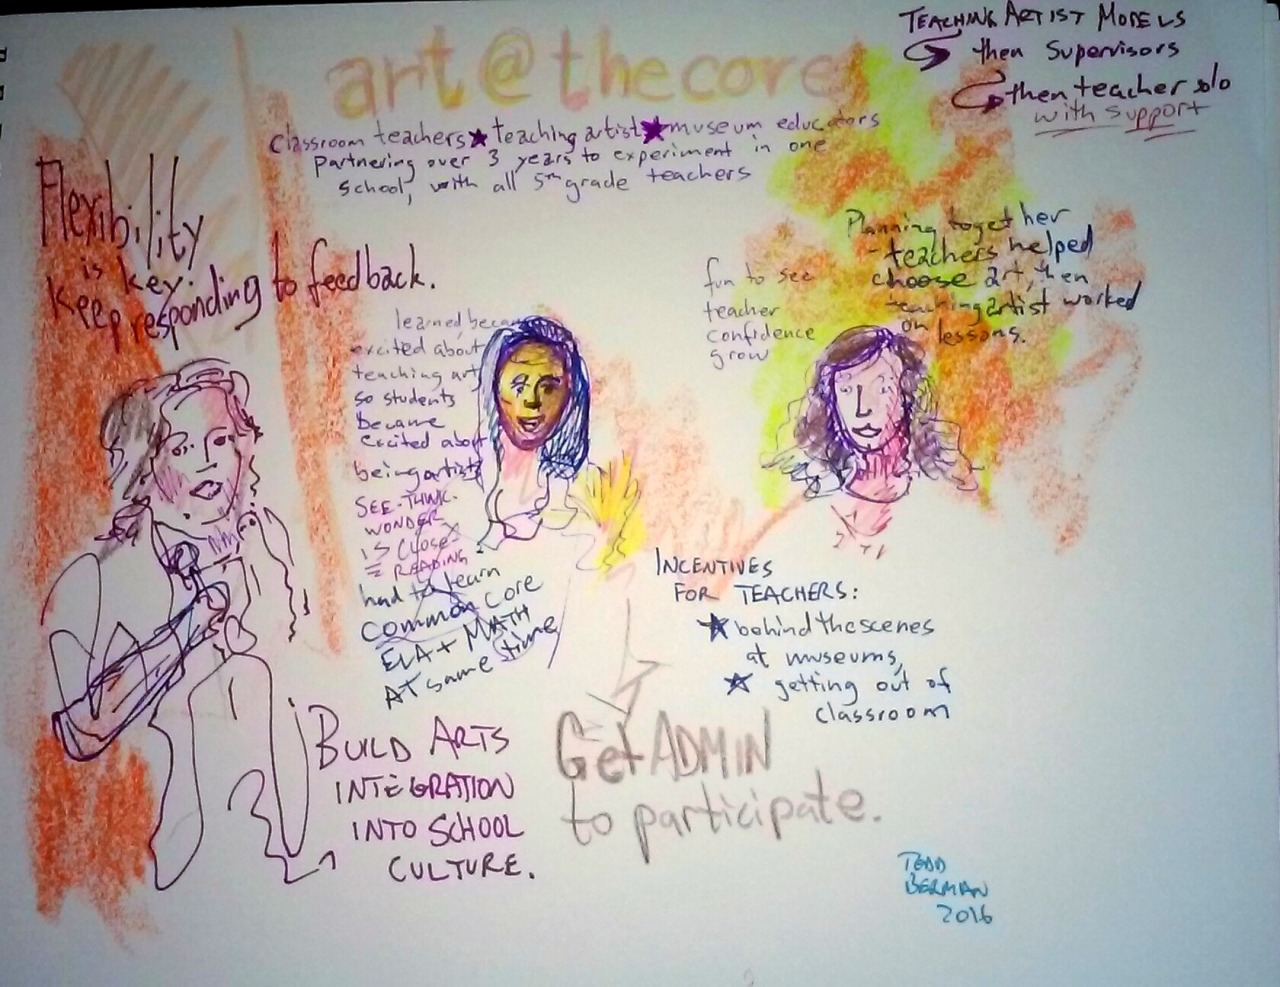 TEACHING ARTIST MODELS
then Supervisors
then teacher solo
with support
art@thecore
classroom teachers★teaching artist★museum educators
Partnering over 3 years to experiment in one
school, with all 5th grade teachers
Flexibility
is key.
Keep responding to feedback.
learned became
excited about
teaching art
so students
became
excited about
being artists
SEE-THINK-
WONDER
IS CLOSE
READING
had to learn
Common Core
ELA + MATH
AT same time
fun to see
teacher
confidence
grow
Planning together
- teachers helped
choose art, then
teaching artist worked
on lessons.
INCENTIVES
FOR TEACHERS:
★ behind the scenes
at museums,
★ getting out of
classroom
BUILD ARTS
INTEGRATION
INTO SCHOOL
CULTURE.
Get ADMIN
to participate.
TODD
BERMAN
2016